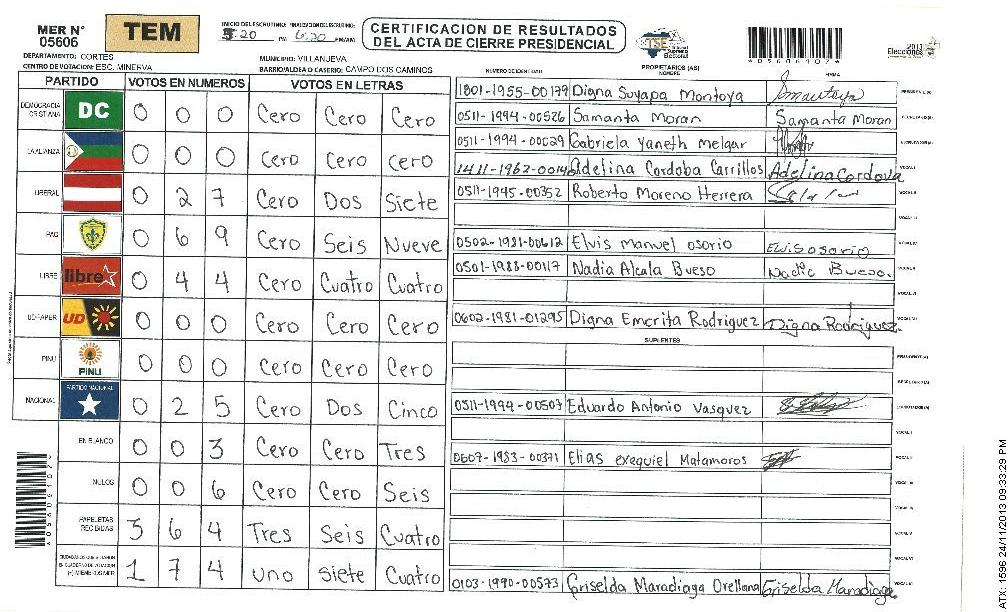 MER N° 05606
TEM
INICIO DEL ESCRUTINIO: FINALIZACION DEL ESCRUTINIO:
5:20 PM 6:30 PM/AM
CERTIFICACION DE RESULTADOS
DEL ACTA DE CIERRE PRESIDENCIAL
TSE Tribunal Supremo Electoral
2013 Elecciones
*05606907*
DEPARTAMENTO: CORTES
MUNICIPIO: VILLANUEVA
CENTRO DE VOTACION: ESC. MINERVA
BARRIO/ALDEA O CASERIO: CAMPO DOS CAMINOS
PARTIDO VOTOS EN NUMEROS VOTOS EN LETRAS
DEMOCRACIA CRISTIANA DC 0 0 0 Cero Cero Cero
LA ALIANZA 0 0 0 Cero Cero cero
LIBERAL 0 27 Cero Dos Siete
PAC 0 6 9 Cero Seis Nueve
LIBRE libre 0 4 4 Cero Cuatro Cuatro
UD-FAPER UD 0 0 0 Cero Cero Cero
PINU PINU 0 0 0 Cero Cero Cero
NACIONAL PARTIDO NACIONAL 0 2 5 Cero Dos Cinco
EN BLANCO 0 0 3 Cero Cero Tres
NULOS 0 0 6 Cero Cero Seis
PAPELETAS RECIBIDAS 3 6 4 Tres Seis Cuatro
CIUDADANOS QUE VOTARON EN CUADERNO DE VOTACION (+) MIEMBROS MER 1 7 4 uno siete Cuatro
NUMERO DE IDENTIDAD PROPIETARIOS (AS) NOMBRE FIRMA
1801-1955-00179 Digna Suyapa Montoya PRESIDENTE (A)
0511-1994-00526 Samanta Moran Samanta Moran SECRETARIO (A)
0511-1994-00029 Gabriela Yaneth Melgar ESCRUTADOR (A)
1411-1962-00146 Adelina Cordoba Carrillos Adelina Cordova VOCAL I
0511-1995-00352 Roberto Moreno Herrera VOCAL II
VOCAL III
0502-1981-00612 Elvis Manuel osorio Elvis osorio VOCAL IV
0501-1983-00117 Nadia Alcala Bueso Nadia Bueso. VOCAL V
VOCAL VI
0602-1981-01295 Digna Emerita Rodriguez Digna Rodriguez. VOCAL VII
SUPLENTES
PRESIDENTE (A)
SECRETARIO (A)
0511-1994-00503 Eduardo Antonio Vasquez ESCRUTADOR (A)
VOCAL I
0607-1983-00371 Elias exequiel Matamoros VOCAL II
VOCAL III
VOCAL IV
VOCAL V
VOCAL VI
0103-1990-00573 Griselda Maradiaga Orellana Griselda Maradiaga VOCAL VII
ATX: 1596 24/11/2013 09:33:29 PM